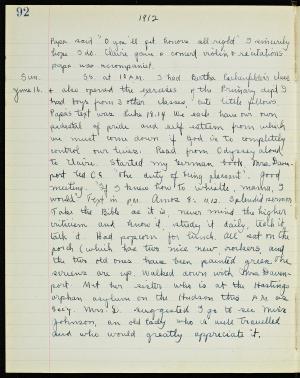 92
1912
Papa said "O you'll get honors all right" I sincerely
hope I do. Claire gave a concert violin & recitations
papa was accompanist.
Sun. SS. at 10 A.M. I had Bertha class
June 16. & also opened the exercises of the Primary dep't I
had boys from 3 other classes cute little fellows
Papa's text was Luke 18:14 We each have our own
pedestal of pride and self esteem from which
we must come down if God is to completely
control our lives. Read from Odyssey aloud
to Claire. Started my German book. Mrs. Daven-
port led C.E. "The duty of being pleasant". Good
meeting. "If I knew how to whistle, mama, I
would" Text in P.M. Amos 8:11,12. Splendid sermon
Take the Bible as it is, never mind the higher
criticism and know it, study it daily, teach it,
talk it. Had popcorn for lunch. All sat on the
porch (which has two nice new rockers, and
the two old ones have been painted green. The
screens are up. Walked down with Mrs. Daven-
port. Met her sister who is at the Hastings
orphan asylum on the Hudson this A.M. at
Secy. Mrs. D. suggested I go to see Miss
Johnson, an old lady who is well travelled
and who would greatly appreciate it.